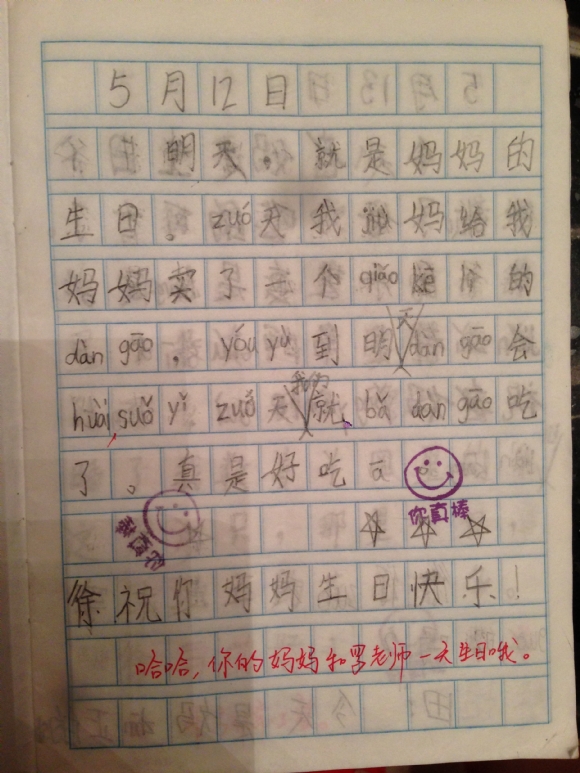 5月12日
明天，就是妈妈的
生日。zuó天我jiù妈给我
妈妈卖了一个qiǎo 的
dàn gāo，yóu yú到明天dàn gāo会
huài,suǒ yǐ zuó天我们就bǎ dàn gāo吃
了。真是好吃ā
你真棒
徐祝你妈妈生日快乐！
哈哈，你的妈妈和罗老师一天生日哦。